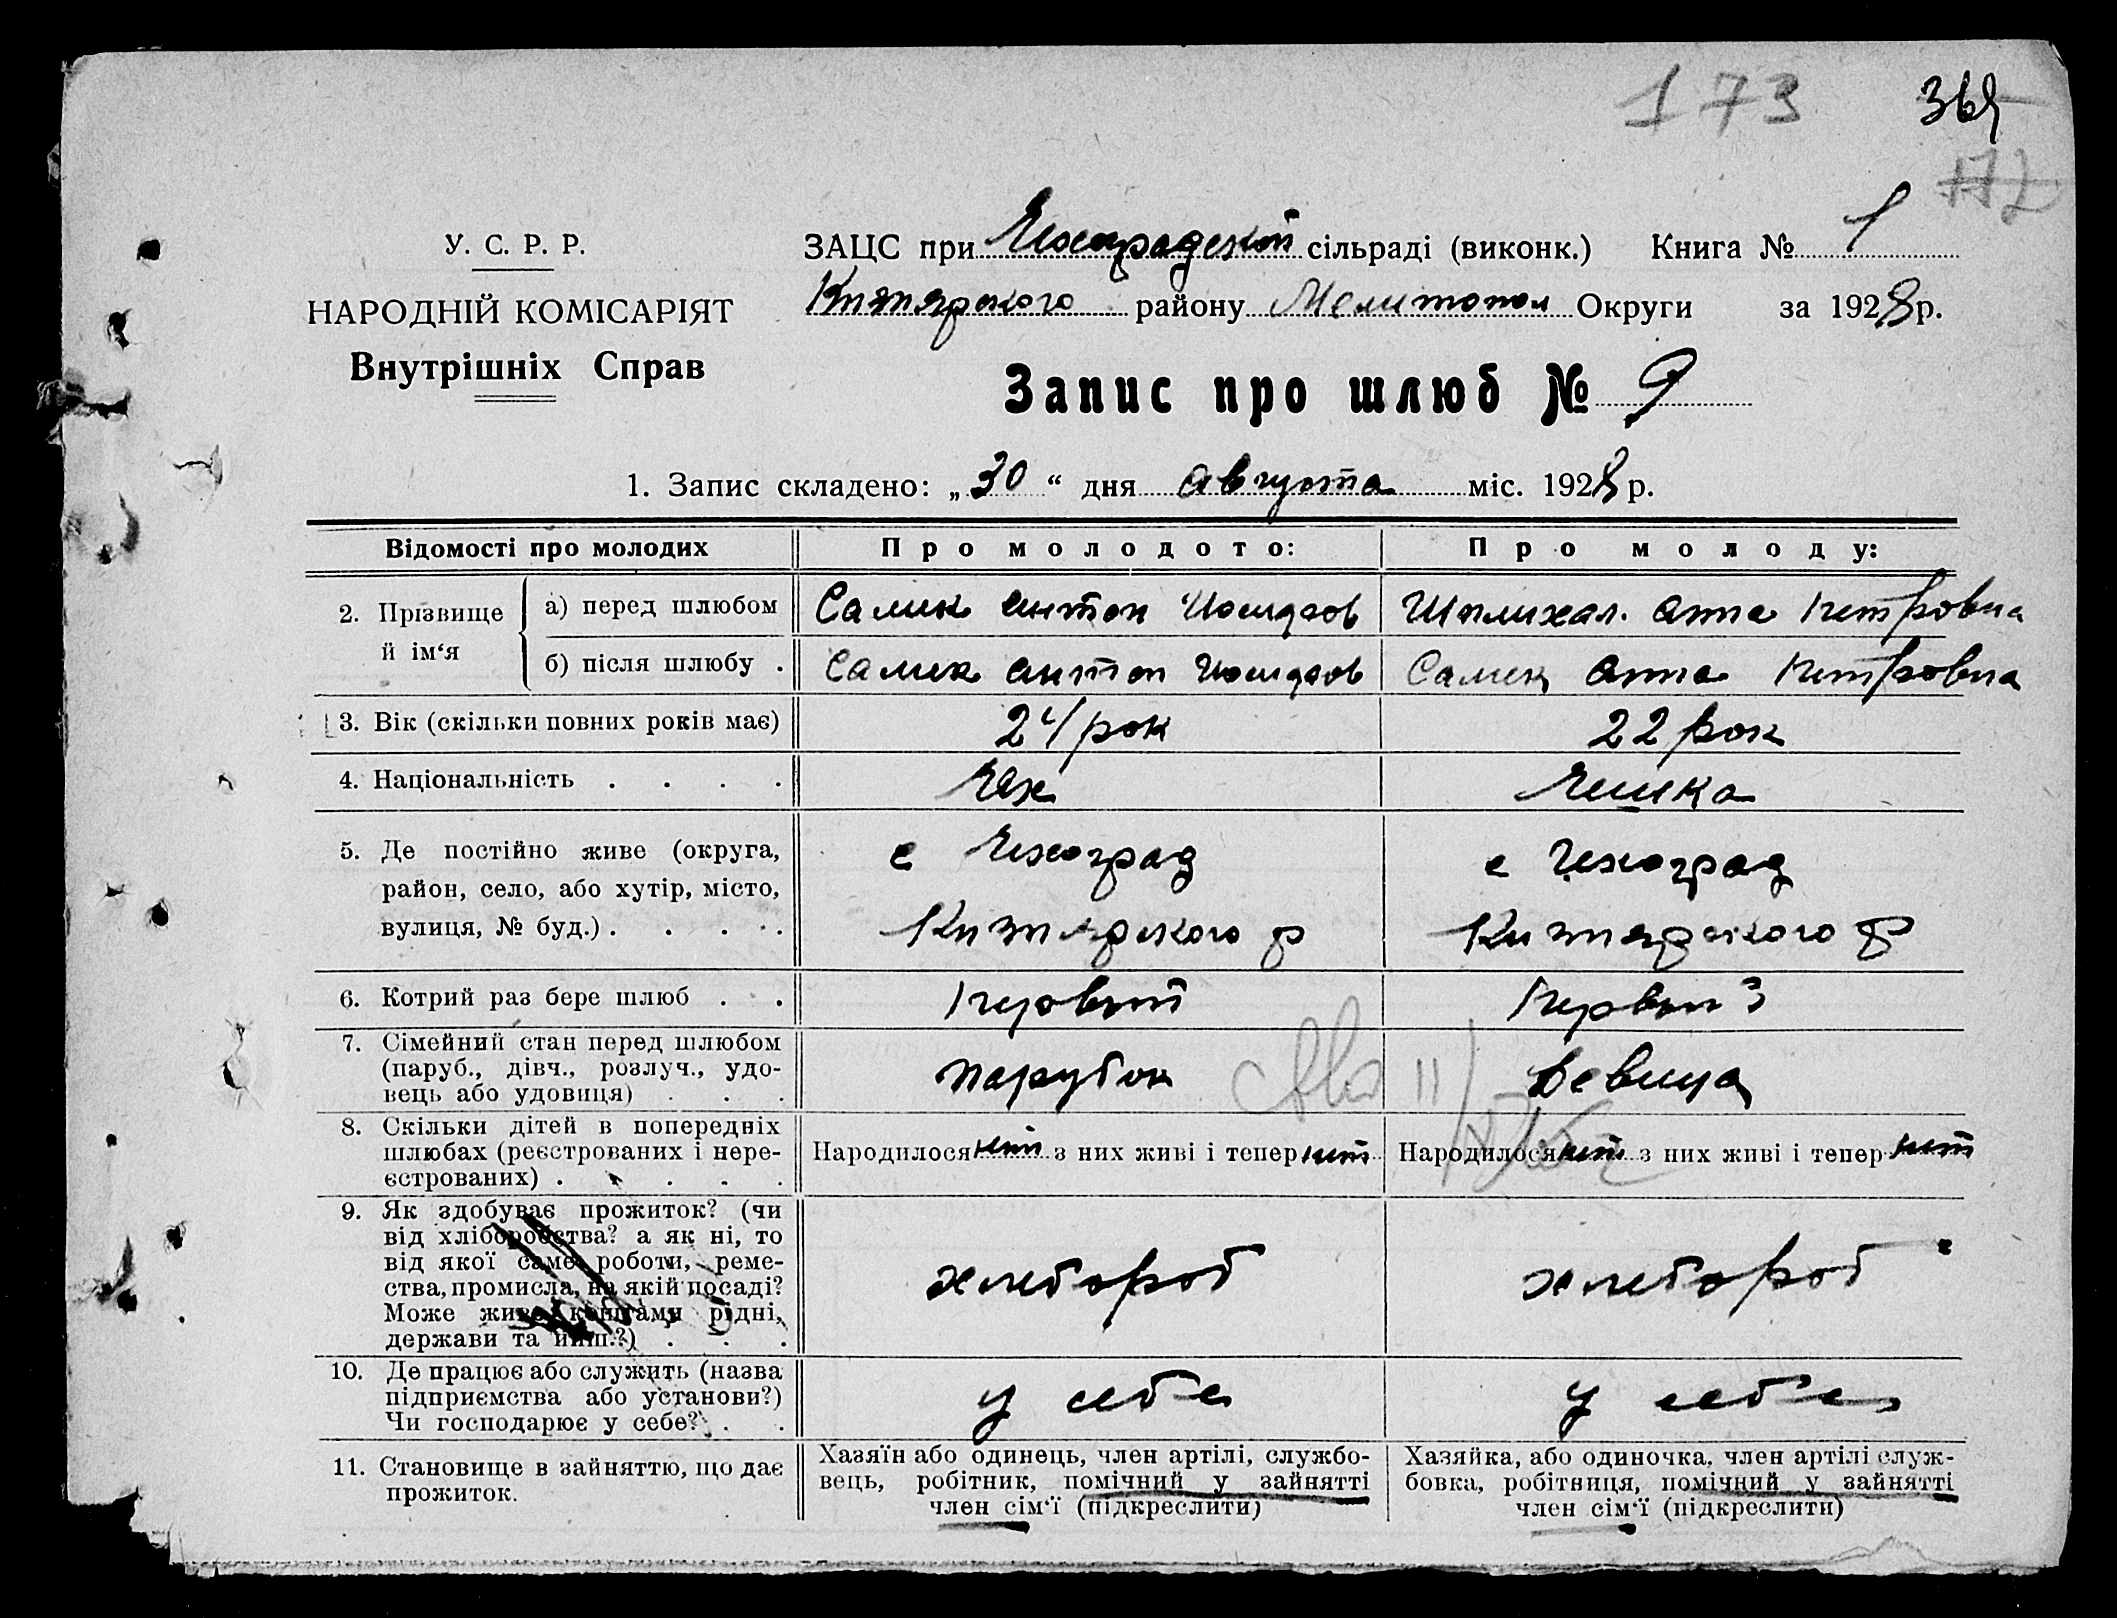 173 369
172
У. С. Р. Р.
НАРОДНІЙ КОМІСАРІЯТ
Внутрішніх Справ
ЗАЦС при Чехоградской сільраді (виконк.) Книга № 1
Кизиярского району Мелитопол Округи за 1928 р.
Запис про шлюб № 9
1. Запис складено: „30“ дня августа міс. 1928 р.
Відомості про молодих Про молодого: Про молоду:
2. Прізвище й ім‘я
а) перед шлюбом Самек Антон Иосифов Анна Петровна
б) після шлюбу . Самек Антон Иосифов Самек Анна Петровна
3. Вік (скільки повних років має) 24 рок 22 рок
4. Національність . . . . Чех Чешка
5. Де постійно живе (округа,
район, село, або хутір, місто,
вулиця, № буд.) . . . . .
с Чехоград
Кизиярского р
с Чехоград
Кизиярского р
6. Котрий раз бере шлюб . . Первый Первый
7. Сімейний стан перед шлюбом
(паруб., дівч., розлуч., удо-
вець або удовиця) . . .
Парубок Девица
8. Скільки дітей в попередніх
шлюбах (реєстрованих і нере-
єстрованих) . . . . .
Народилося нет з них живі і тепер нет Народилося нет з них живі і тепер нет
9. Як здобуває прожиток? (чи
від хліборобства? а як ні, то
від якої саме роботи, реме-
ства, промисла, на якій посаді?
Може живе коштами рідні,
держави та инш.?) . . .
хлебороб хлебороб
10. Де працює або служить (назва
підприємства або установи?)
Чи господарює у себе? . .
у себе у себе
11. Становище в зайняттю, що дає
прожиток.
Хазяїн або одинець, член артілі, службо-
вець, робітник, помічний у зайнятті
член сім‘ї (підкреслити)
Хазяйка, або одиночка, член артілі служ-
бовка, робітниця, помічний у зайнятті
член сім‘ї (підкреслити)